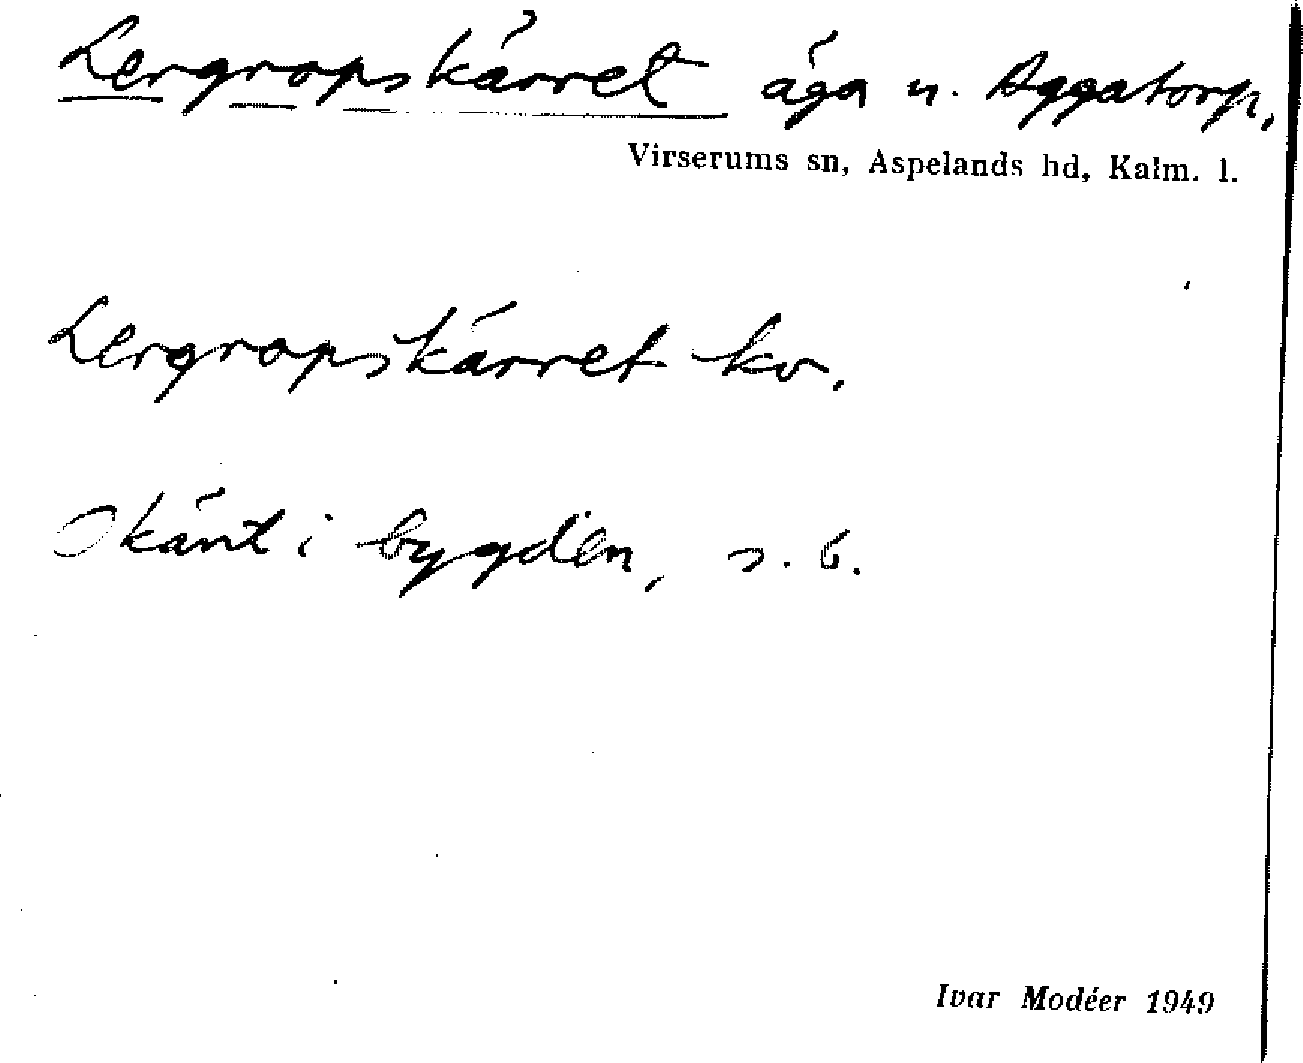 Lergropskärret äga u. Aggatorp,
Virserums sn, Aspelands hd, Kalm. l.
Lergropskärret kv.
Okänt i bygden, s. b.
Ivar Modéer 1949